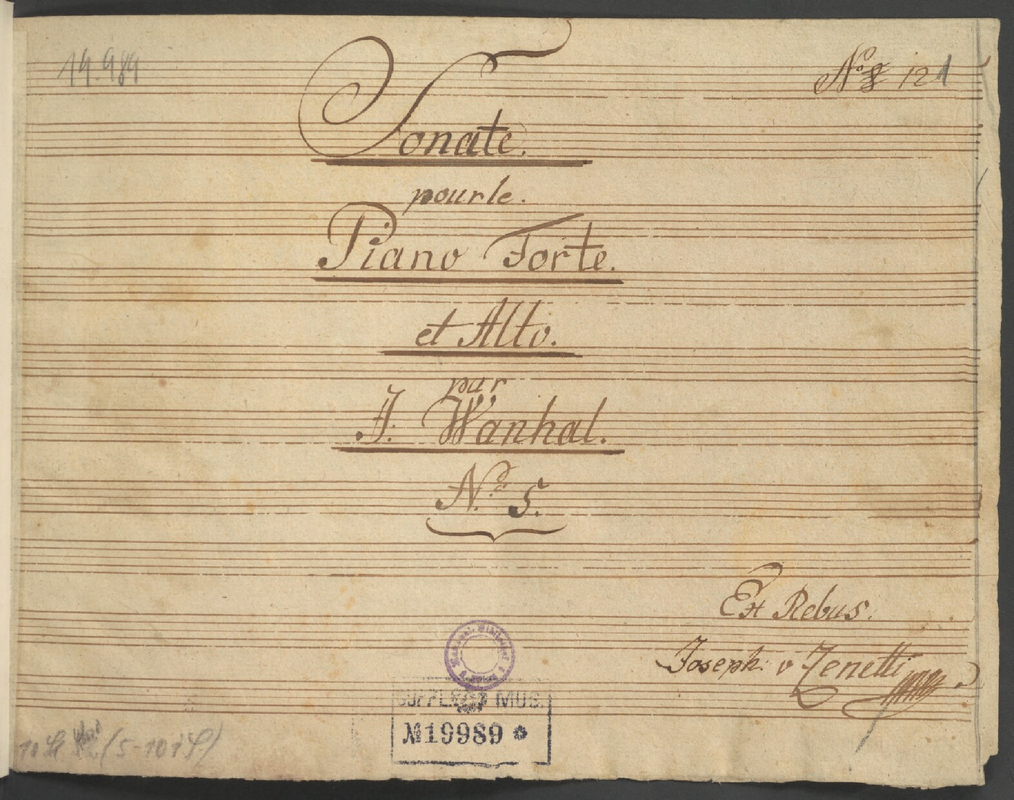 19.989
No 121
Sonate.
pour le.
Piano Forte.
et Alto.
par
J. Wanhal.
No. 5.
Ex Rebus.
Joseph v Zenetti
SUPPL. MUS.
№19989 *
(5-10